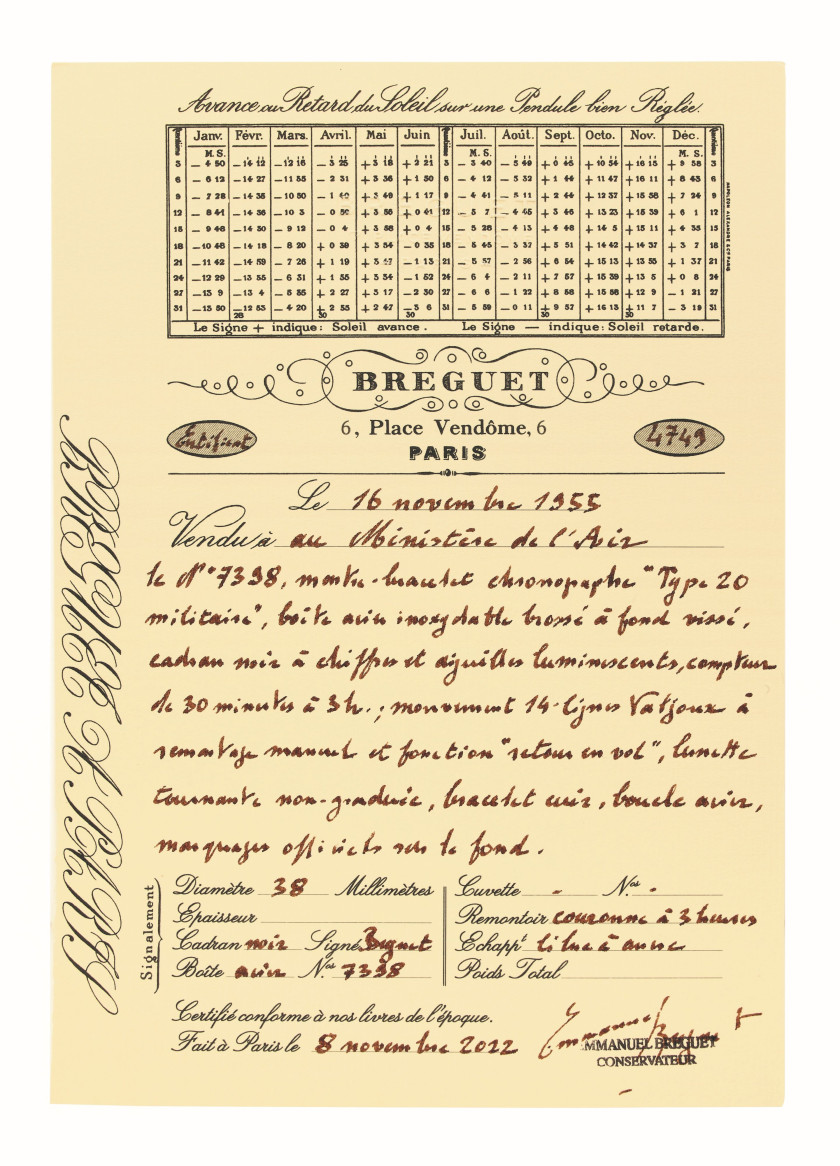 Avance ou Retard du Soleil sur une Pendule bien Réglée.
Janv. Févr. Mars. Avril. Mai Juin Juil. Août. Sept. Octo. Nov. Déc.
M. S. M. S. M. S.
3 — 4 50 — 14 12 — 12 16 — 3 25 + 3 18 + 2 21 3 — 3 40 — 5 49 + 0 45 + 10 54 + 16 15 + 9 58 3
6 — 6 12 — 14 27 — 11 35 — 2 31 + 3 36 + 1 50 6 — 4 12 — 5 32 + 1 44 + 11 47 + 16 11 + 8 43 6
9 — 7 28 — 14 35 — 10 50 — 1 + 3 49 + 1 17 9 — 4 41 — 5 11 + 2 44 + 12 37 + 15 58 + 7 24 9
12 — 8 41 — 14 36 — 10 3 — 0 + 3 56 + 0 41 12 — 5 7 — 4 45 + 3 46 + 13 23 + 15 39 + 6 1 12
15 — 9 48 — 14 30 — 9 12 — 0 4 + 3 58 + 0 4 15 — 5 28 — 4 13 + 4 48 + 14 5 + 15 11 + 4 35 15
18 — 10 48 — 14 18 — 8 20 + 0 39 + 3 54 — 0 35 18 — 5 45 — 3 37 + 5 51 + 14 42 + 14 37 + 3 7 18
21 — 11 42 — 14 59 — 7 26 + 1 19 + 3 — 1 13 21 — 5 57 — 2 56 + 6 54 + 15 13 + 13 55 + 1 37 21
24 — 12 29 — 13 35 — 6 31 + 1 55 + 3 34 — 1 52 24 — 6 4 — 2 11 + 7 57 + 15 39 + 13 5 + 0 8 24
27 — 13 9 — 13 4 — 5 35 + 2 27 + 3 17 — 2 30 27 — 6 6 — 1 22 + 8 58 + 15 58 + 12 9 — 1 21 27
31 — 13 50 — 12 53 — 4 20 + 2 55 + 2 47 — 3 6 31 — 5 59 — 0 11 + 9 57 + 16 13 + 11 9 — 3 19 31
28 30 30 30 30
Le Signe + indique: Soleil avance. Le Signe — indique: Soleil retarde.
BREGUET
6, Place Vendôme, 6
PARIS
Certificat
4749
Le 16 novembre 1955
Vendu à au Ministère de l'Air
le N° 7398, montre-bracelet chronographe "Type 20
militaire", boîte acier inoxydable brossé à fond vissé,
cadran noir à chiffres et aiguilles luminescents, compteur
de 30 minutes à 3h.; mouvement 14-lignes Valjoux à
remontage manuel et fonction "retour en vol", lunette
tournante non-graduée, bracelet cuir, boucle acier,
marquages officiels sur le fond.
Signalement
Diamètre 38 Millimètres
Epaisseur
Cadran noir Signé Breguet
Boîte acier Nos 7398
Cuvette - Nos -
Remontoir couronne à 3 heures
Echappt ligne à ancre
Poids Total
Certifié conforme à nos livres de l'époque.
Fait à Paris le 8 novembre 2022
Emmanuel Breguet
MMANUEL BREGUET
CONSERVATEUR